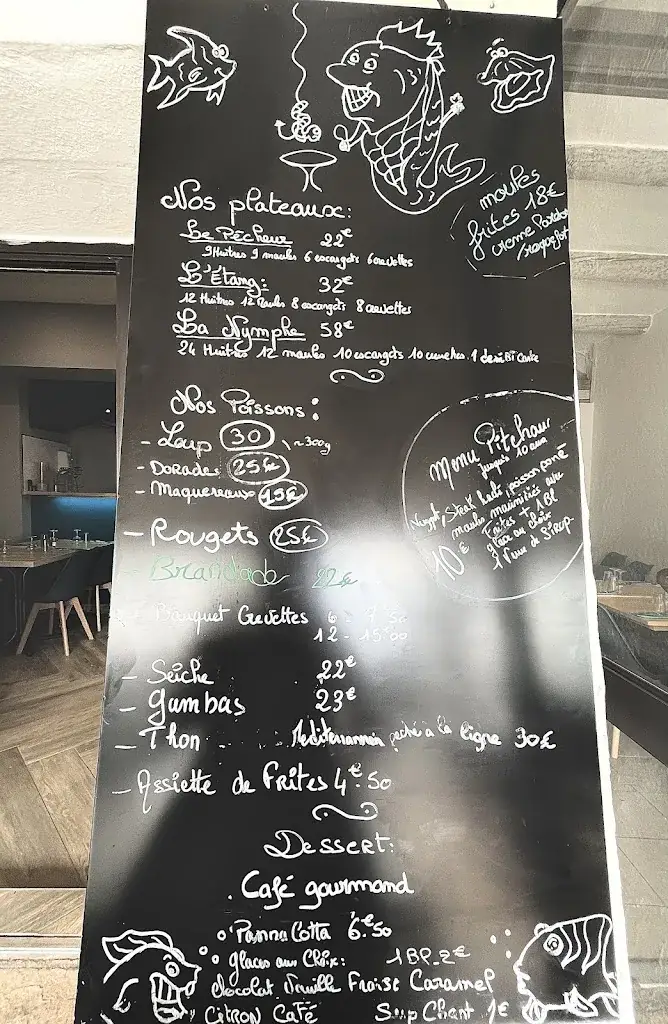 Nos plateaux:
Le Pêcheur 22€
9 Huitres 9 moules 6 escargots 6 crevettes
L'Étang: 32€
12 Huitres 12 Moules 8 escargots 8 crevettes
La Nymphe 58€
24 Huitres 12 moules 10 escargots 10 crevettes 1 demi
moules
frites 18€
creme
Nos Poissons:
- Loup 30 ~300g
- Dorades 25€
- Maquereaux 19€
- Rougets 25€
- Brandade 22€
Bouquet Crevettes 6 - 7'50
12 - 15'00
- Seiche 22€
- Gambas 23€
- Thon Mediterranéen peché à la ligne 30€
- Assiette de Frites 4€.50
Menu Pitchoun
jusqu'à 10 ans
Nuggets, Steak haché, poisson pané
moules marinières avec
Frites + 1 Bl
glace au choix
1 verre de Sirop
10€
Dessert:
. Café gourmand
o Panna Cotta 6€.50
o glaces aux choix: 1 BP_2€
chocolat Vanille Fraise Caramel
CITRON CaFé Sup Chant 1€